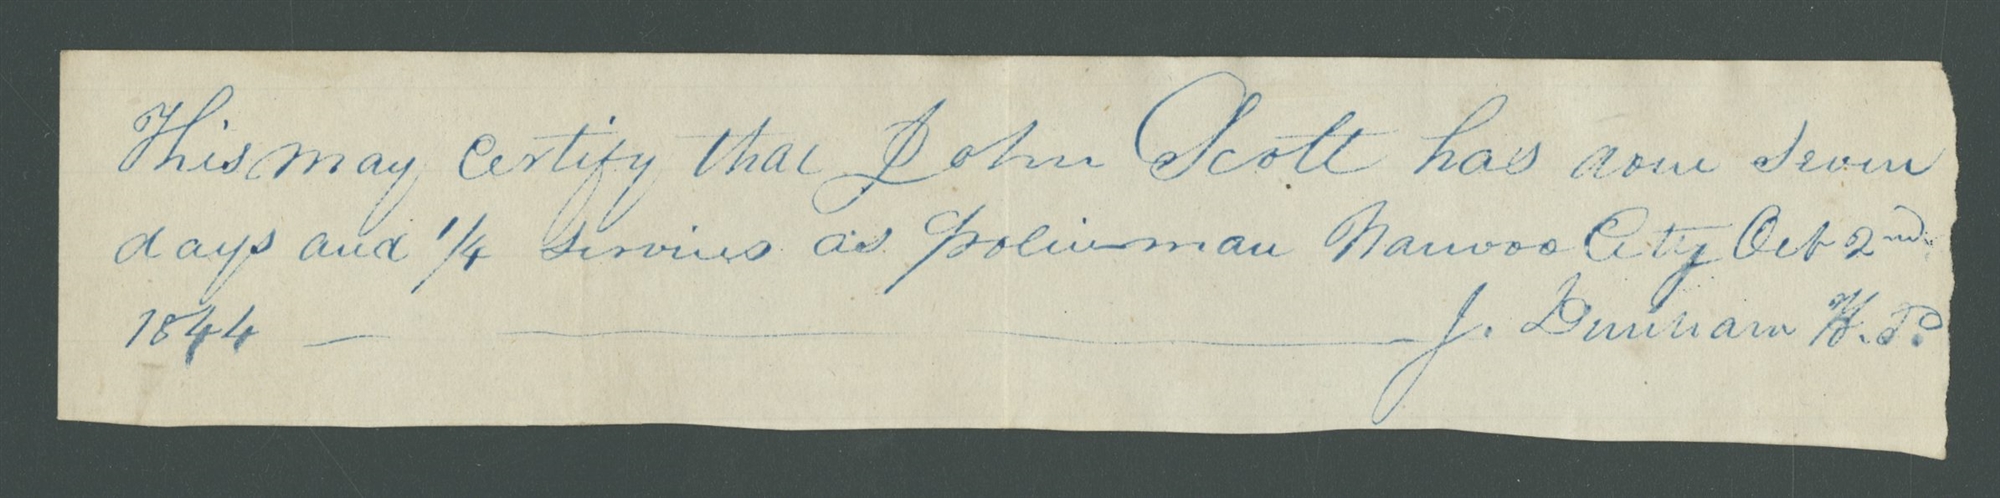 This may certify that John Scott has done seven
days and 1/4 servises as policeman Nauvoo City Oct 2nd
1844 — J. Dunham H. P.